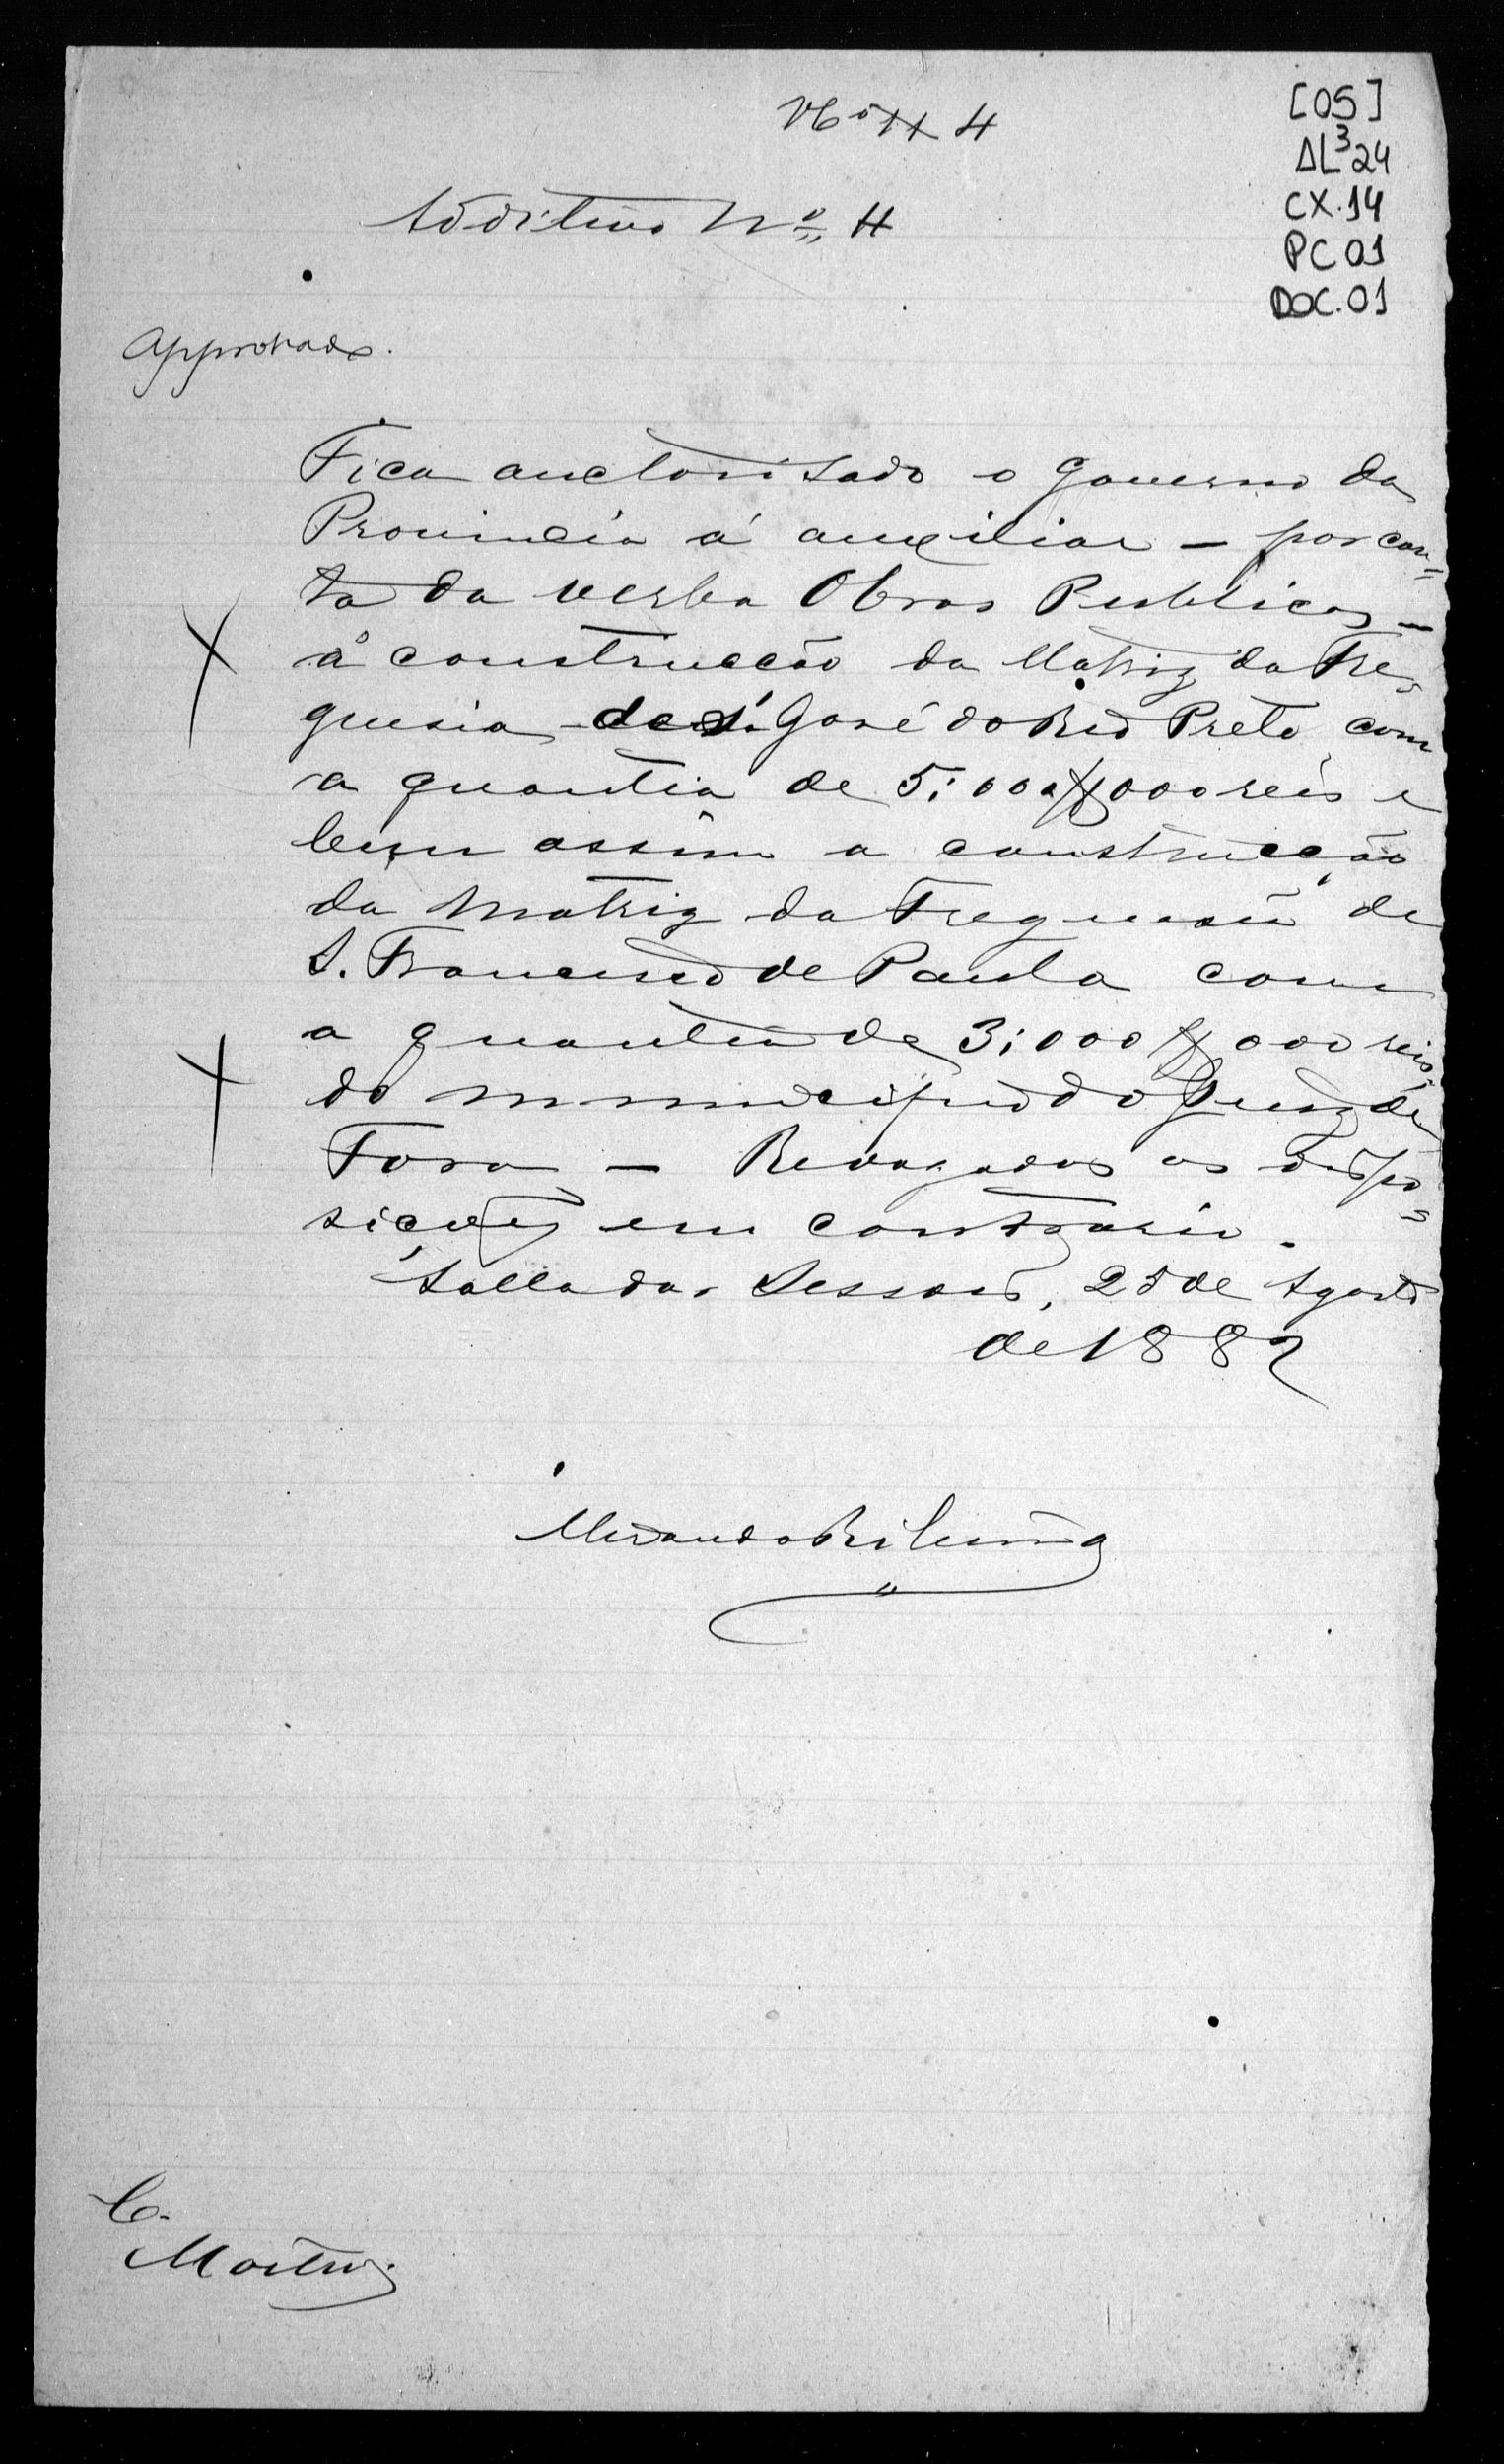 [05]
AL³24
CX.14
PC 01
DOC.01
Nº 11 4
Additivo Nº 4
Approvado.
Fica auctorisado o Governo da
Provincia á auxiliar – por con=
ta da verba Obras Publicas –
á construcção da Matriz da Fre=
guesia de S. José do Rio Preto com
a quantia de 5:000$000 reis e
bem assim a construcção
da Matriz da Freguesia de
S. Francisco de Paula com
a quantia de 3:000$000 reis,
do municipio do Juiz de
Fora – Revogadas as dispo=
sições em contrario.
Salla das Sessoes, 25 de Agosto
de 1882
Miranda Ribeiro
C.
Martins